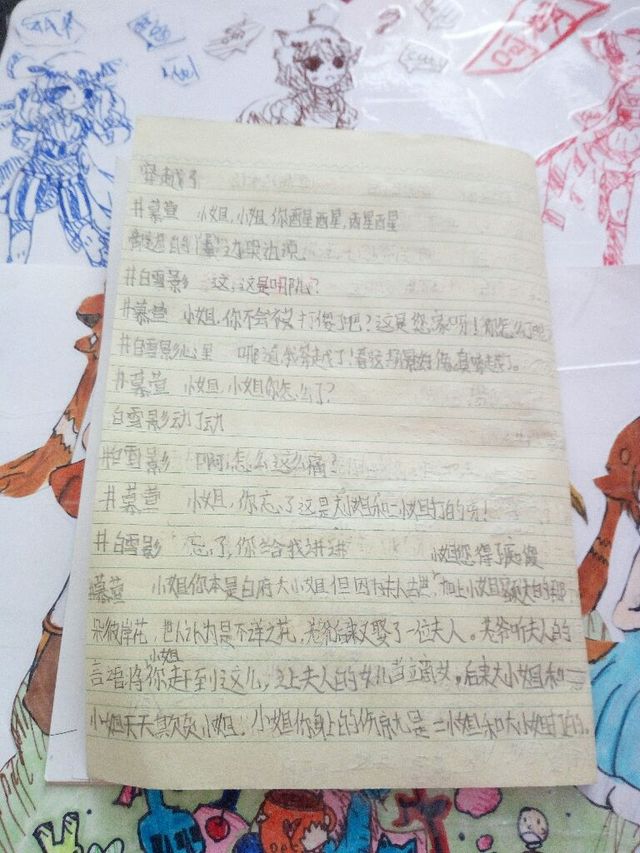 穿越了
#慕萱 小姐,小姐,你酉星酉星,酉星酉星
边哭边说.
#白雪影 这,这是哪儿?
#慕萱 小姐,你不会被打傻了吧?这是您家呀!你怎么了呢?
#白雪影心里 我穿越了!看这场景好像真的穿越了。
#慕萱 小姐,小姐你怎么了?
白雪影动了动
#白雪影 啊,怎么这么痛?
#慕萱 小姐,你忘了这是大小姐和二小姐打的呀!
#白雪影 忘了,你给我讲进 小姐您得了
#慕萱 小姐你本是白府大小姐但因为夫人去世,加上小姐
朵彼岸花,世人认为是不详之花,老爷后来又娶了一位夫人。老爷听夫人的
言语将小姐你赶到这儿,让夫人的女儿当立嫡女。后来大小姐和
小姐天天欺负小姐.小姐你身上的伤就是二小姐和大小姐打的.